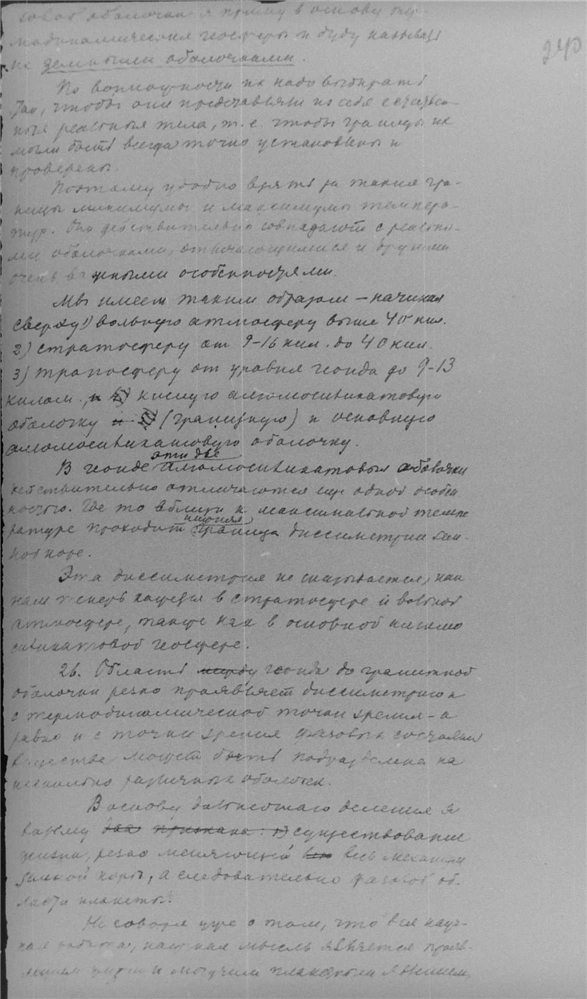 овой оболочки я приму в основу тер-
модинамическия геосферы и буду называть
их земными оболочками.
240
По возможности их надо выбирать
так, чтобы они представляли из себя естествен-
ныя реальныя тела, т. е. чтобы границы их
могли быть всегда точно установлены и
проверены.
Поэтому удобно взять за такия гра-
ницы минимумы и максимумы темпера-
тур. Они действительно совпадают с реальны-
ми оболочками, отличающимися и другими
очень важными особенностями.
Мы имеем таким образом – начиная
сверху 1) вольную атмосферу выше 40 кил.
2) стратосферу от 9-16 кил. до 40 кил.
3) тропосферу от уровня геоида до 9-13
килом., кислую алюмосиликатовую
оболочку (границную) и основную
алюмосиликатовую оболочку.
В геоиде эти две алюмосиликатовыя оболочки
действительно отличаются еще одной особен
ностью. Где то вблизи к максимальной темпе
ратуре проходит нижняя граница диссиметрии зем-
ной коры.
Эта диссиметрия не сказывается, как
нам теперь кажется в стратосфере и вольной
атмосфере, также как в основной алюмо
силикатовой геосфере.
26. Область между геоида до гранитной
оболочки резко проявляет диссиметрию и
с термодинамической точки зрения – а
равно и с точки зрения фазовых состояний
вещества может быть подразделена на
несколько различных оболочек.
В основу дальнейшаго деления я
возьму два признака: 1) существование
жизни, резко меняющей весь механизм
земной коры, а следовательно фазовой об-
ласти планеты.
Не говоря уже о том, что вся науч-
ная работа, научная мысль является прояв-
лением жизни и могучим планетным явлением,